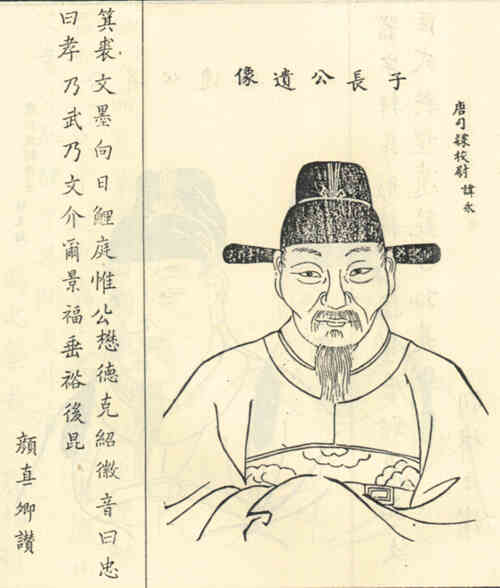 唐司隸校尉 諱永
子長公遺像
箕裘文墨向日鯉庭惟公懋德克紹徽音曰忠
曰孝乃武乃文介爾景福垂裕後昆
顏真卿讚